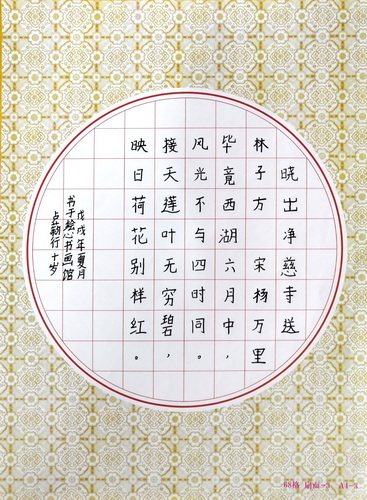 晓出净慈寺送
林子方 宋杨万里
毕竟西湖六月中，
风光不与四时同。
接天莲叶无穷碧，
映日荷花别样红。
戊戌年夏月
书于绘心书画馆
行 十岁
68格 扇面-3 A4-a